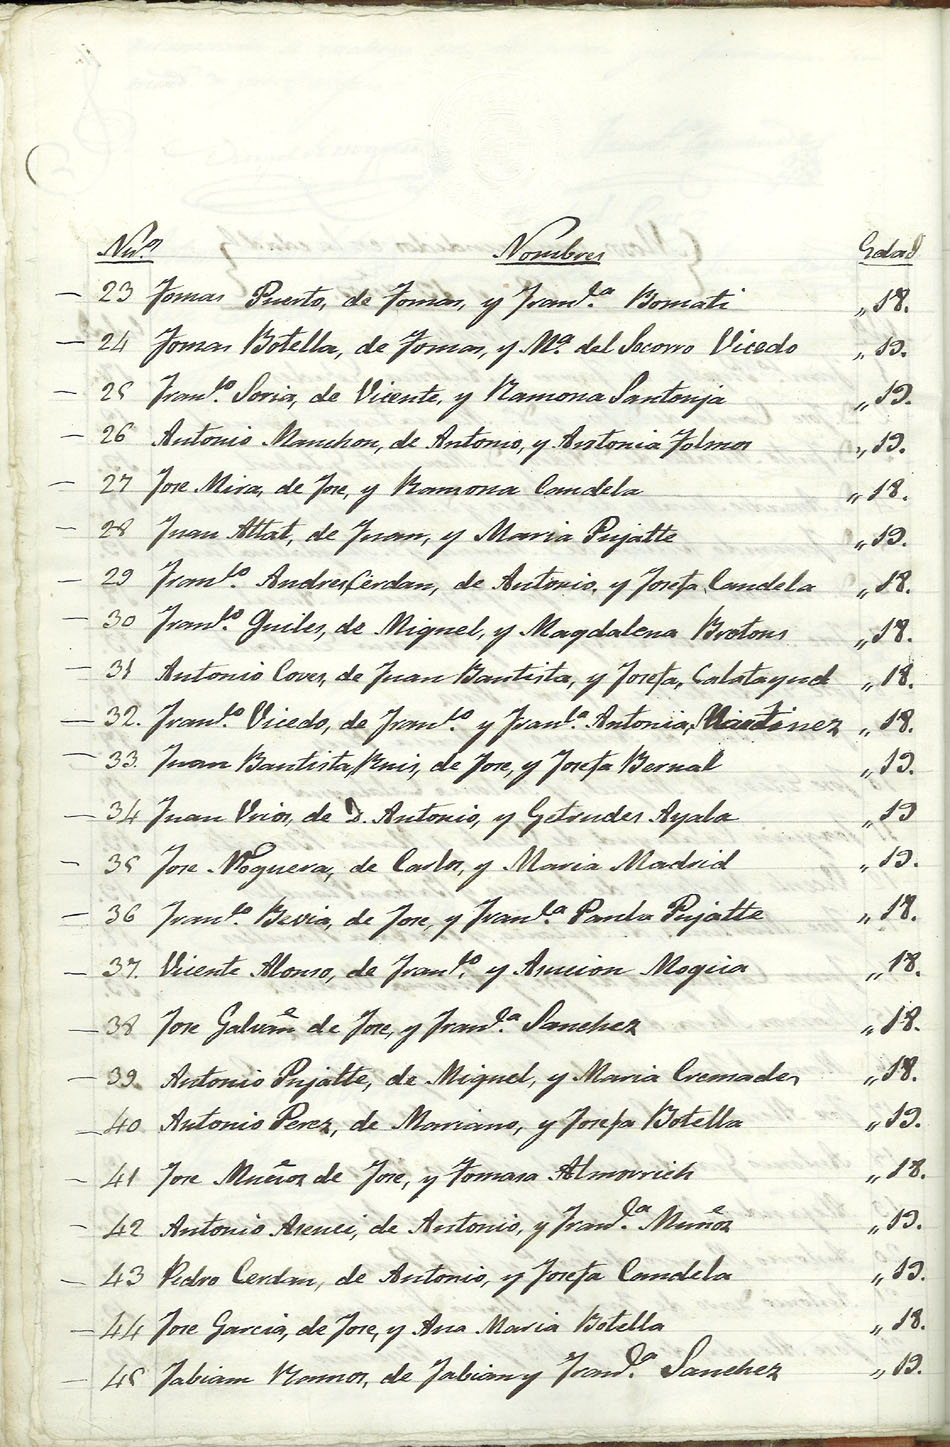 Num.º Nombres Edad
— 23 Tomas Puerto, de Tomas, y Fran.ca Bomati „ 18.
— 24 Tomas Botella, de Tomas, y M.ª del Socorro Vicedo „ 19.
— 25 Fran.co Soria, de Vicente, y Ramona Santonja „ 19.
— 26 Antonio Manchon, de Antonio, y Antonia Tolmos „ 19.
— 27 Jose Mira, de Jose, y Ramona Candela „ 18.
— 28 Juan Attat, de Juan, y Maria Pujatte „ 19.
— 29 Fran.co Andres Cerdan, de Antonio, y Josefa Candela „ 18.
— 30 Fran.co Guiles, de Miguel, y Magdalena Brotons „ 18.
— 31 Antonio Cover, de Juan Bautista, y Josefa, Calatayud „ 18.
— 32. Fran.co Vicedo, de Fran.co y Fran.ca Antonia, Martinez „ 18.
— 33. Juan Bautista Ruis, de Jose, y Josefa Bernal „ 19.
— 34 Juan Vrios, de D. Antonio, y Getrudes Ayala „ 19
— 35 Jose Noguera, de Carlos, y Maria Madrid „ 19.
— 36 Fran.co Bevia, de Jose, y Fran.ca Paula Pujatte „ 18.
— 37. Vicente Alonso, de Fran.co y Asuncion Mogica „ 18.
— 38 Jose Galvañ de Jose, y Fran.ca Sanchez „ 18.
— 39. Antonio Pujatte, de Miguel, y Maria Cremades „ 18.
— 40 Antonio Perez, de Mariano, y Josefa Botella „ 19.
— 41 Jose Muñoz de Jose, y Tomasa Almovrich „ 18.
— 42 Antonio Asenci, de Antonio, y Fran.ca Muñoz „ 19.
— 43 Pedro Cerdan, de Antonio, y Josefa Candela „ 19.
— 44 Jose Garcia, de Jose, y Ana Maria Botella „ 18.
— 45 Fabian Ramos, de Fabian y Fran.ca Sanchez „ 19.